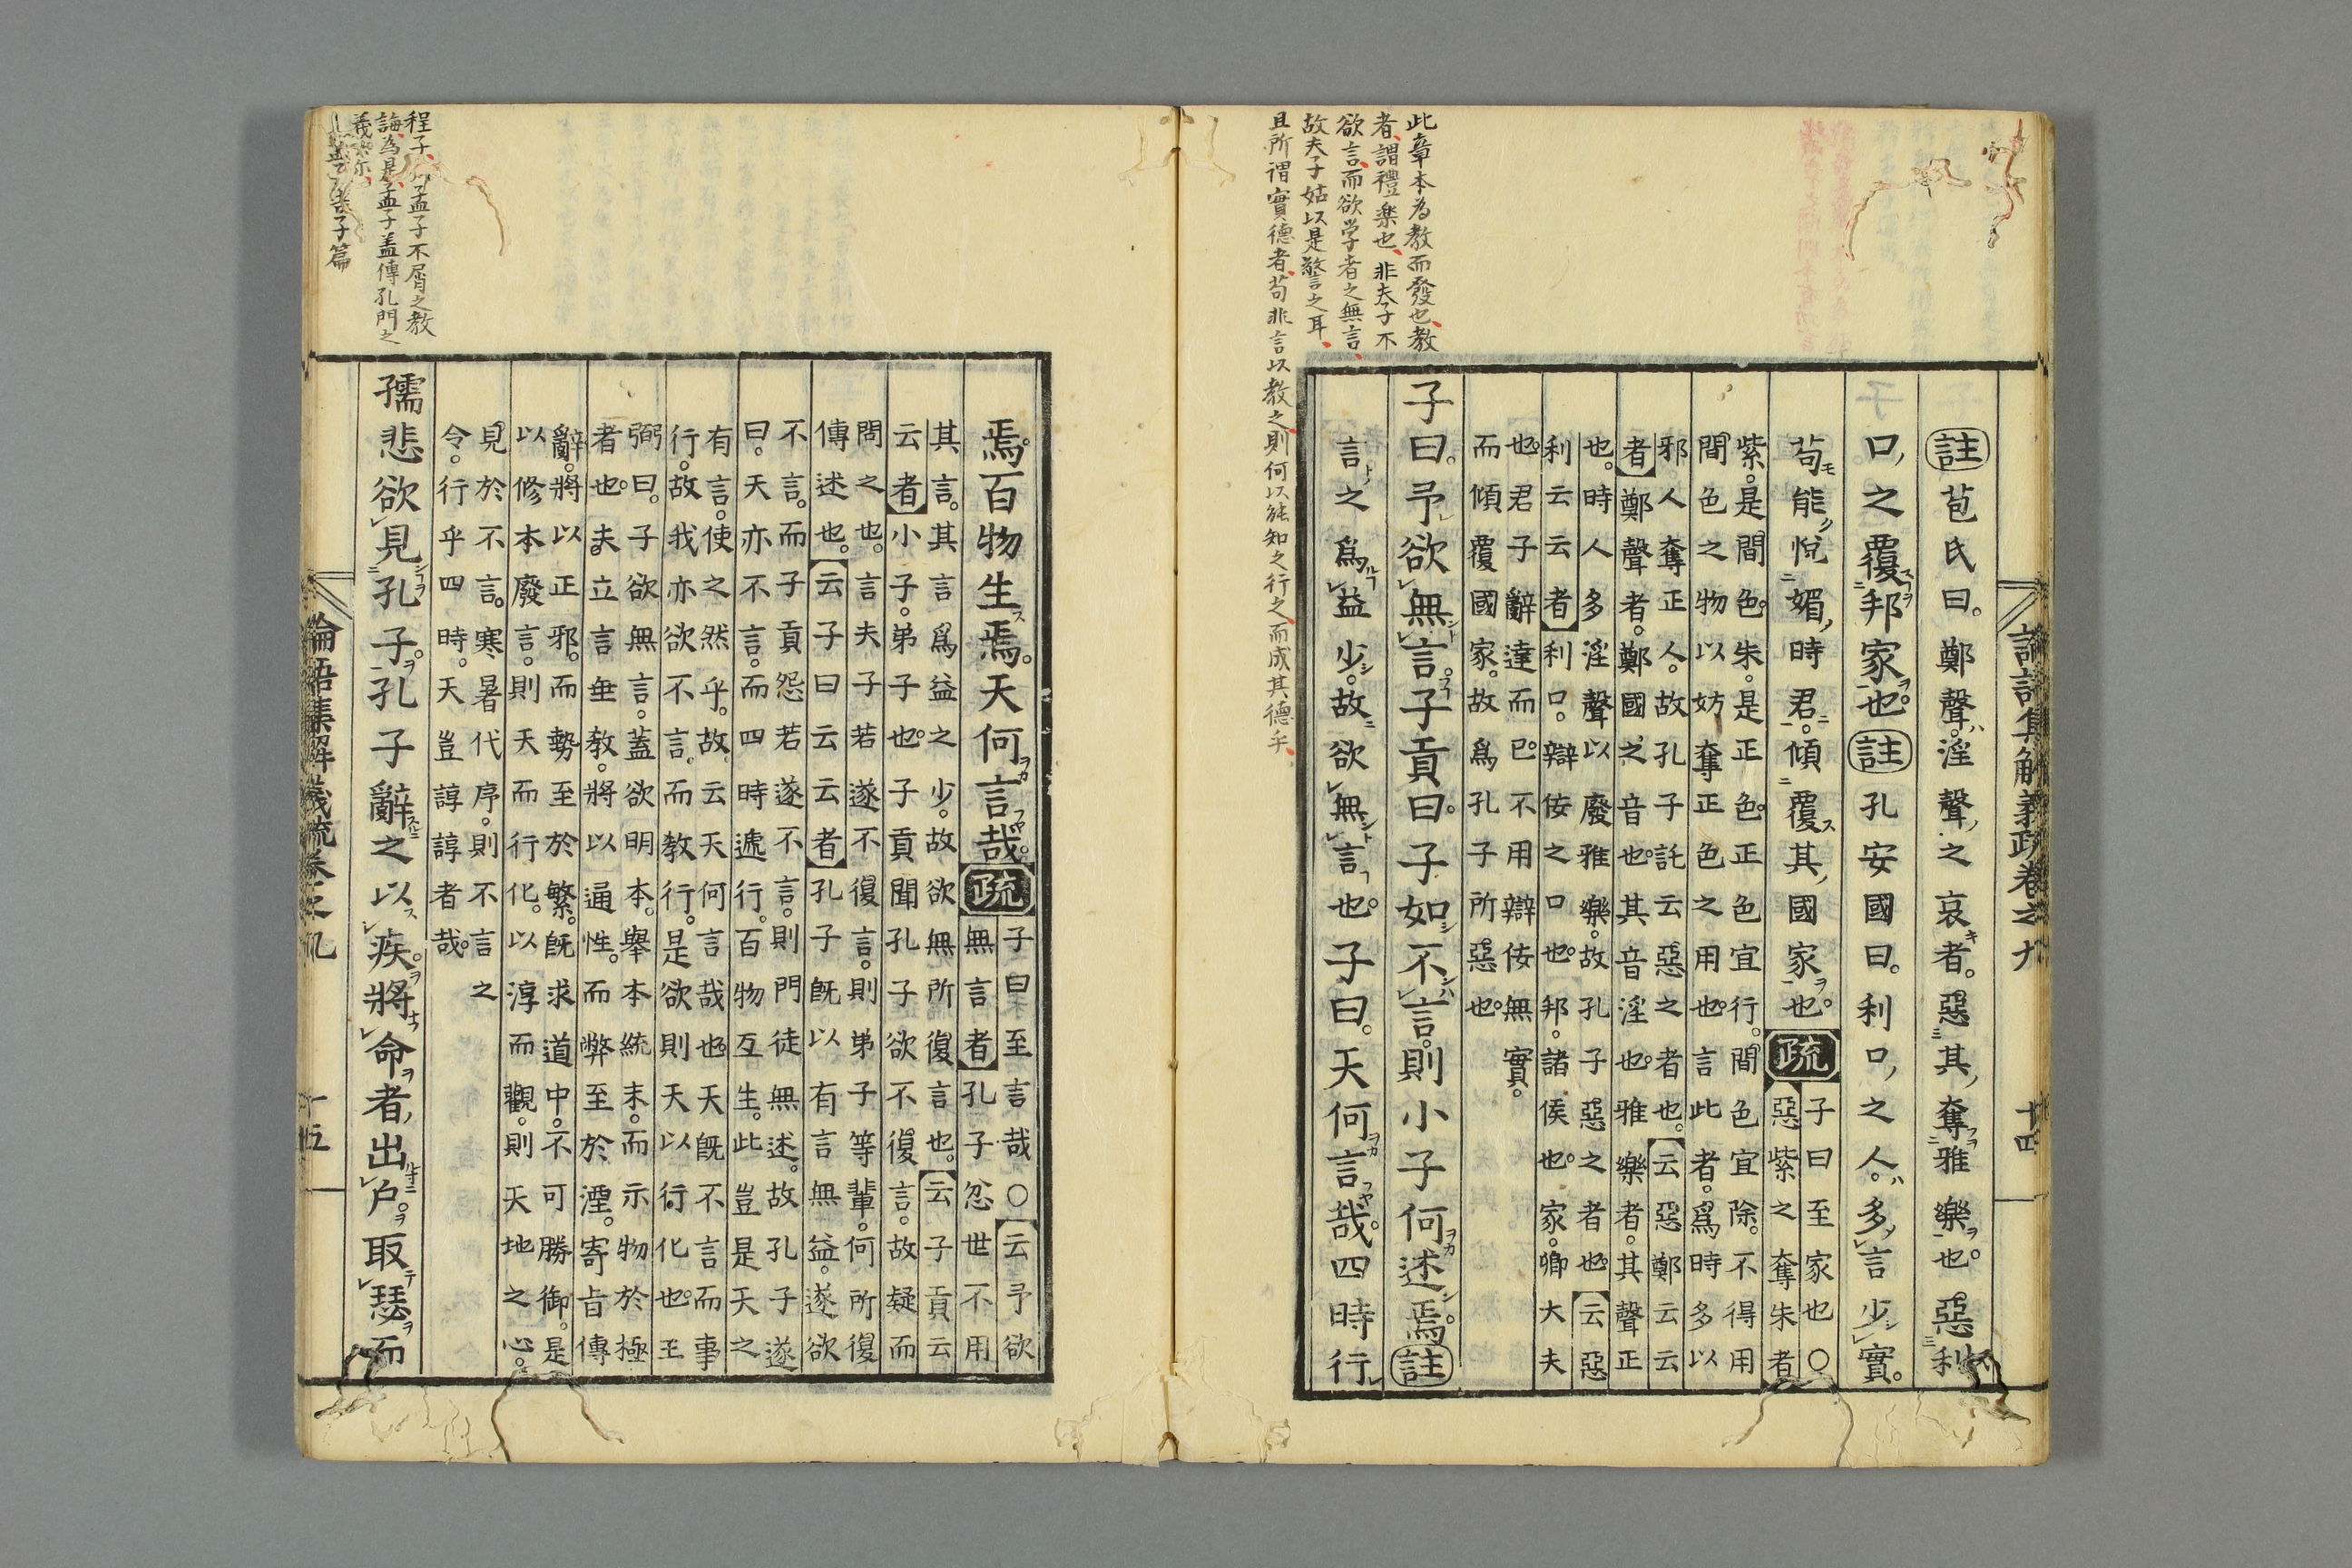 論語集解義疏卷之九
十四
此章本為教而發也教
者謂禮楽也非夫子不
欲言而欲学者之無言
故夫子姑以是警之耳
且所謂實德者苟非言以教之則何以能知之行之而成其德乎
註苞氏曰。鄭聲。淫聲之哀者。惡其奪雅樂也。惡利
口之覆邦家也。註孔安國曰。利口之人。多言少實。
苟能悅媚時君。傾覆其國家也。疏
子曰至家也○
惡紫之奪朱者
紫。是間色。朱。是正色。正色宜行。間色宜除。不得用
間色之物以妨奪正色之用也。言此者。爲時多以
邪。人奪正人。故孔子託云惡之者也。云惡鄭云云
者鄭聲者。鄭國之音也。其音淫也。雅樂者。其聲正
也。時人多淫聲以廢雅樂。故孔子惡之者也。云惡
利云云者利口。辯佞之口也。邦。諸侯也。家。卿大夫
也。君子辭達而已。不用辯佞無實。
而傾覆國家。故爲孔子所惡也。
子曰。予欲無言。子貢曰。子如不言。則小子何述焉。註
言之爲益少。故欲無言也。子曰。天何言哉。四時行
焉。百物生焉。天何言哉。疏
子曰至言哉○云予欲
無言者孔子忿世不用
其言。其言爲益之少。故欲無所復言也。云子貢云
云者小子。弟子也。子貢聞孔子欲不復言。故疑而
問之也。言夫子若遂不復言。則弟子等輩。何所復
傳述也。云子曰云云者孔子既以有言無益。遂欲
不言。而子貢怨若遂不言。則門徒無述。故孔子遂
曰。天亦不言。而四時遞行。百物互生。此豈是天之
有言。使之然乎。故云天何言哉也天既不言而事
行。故我亦欲不言。而教行。是欲則天以行化也。王
弼曰。子欲無言。蓋欲明本。舉本統末。而示物於極
者也。夫立言垂教。將以通性。而弊至於湮。寄旨傳
辭。將以正邪。而勢至於繁。既求道中。不可勝御。是
以修本廢言。則天而行化。以淳而觀。則天地之心。
見於不言。寒暑代序。則不言之
令。行乎四時。天豈諄諄者哉。
孺悲欲見孔子。孔子辭之以疾。將命者出戶。取瑟而
程子以孟子不屑之教
誨為是孟子盖傳孔門之
十五